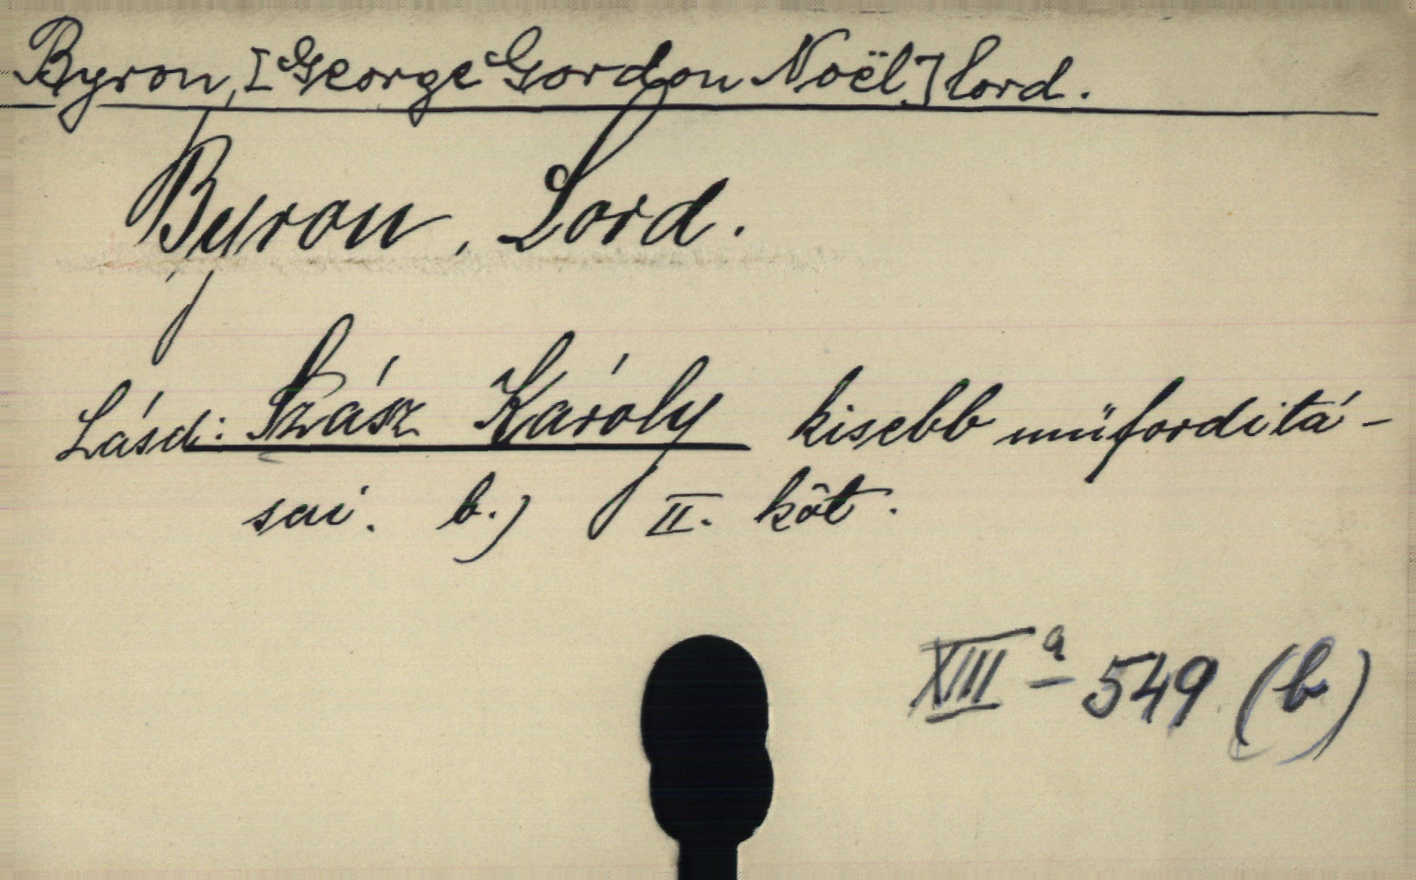 Byron, [George Gordon Noël] lord.
Byron, Lord.
Lásd: Szász Károly kisebb műfordítá-
sai. b.) II. köt.
XIII a - 549 (b)